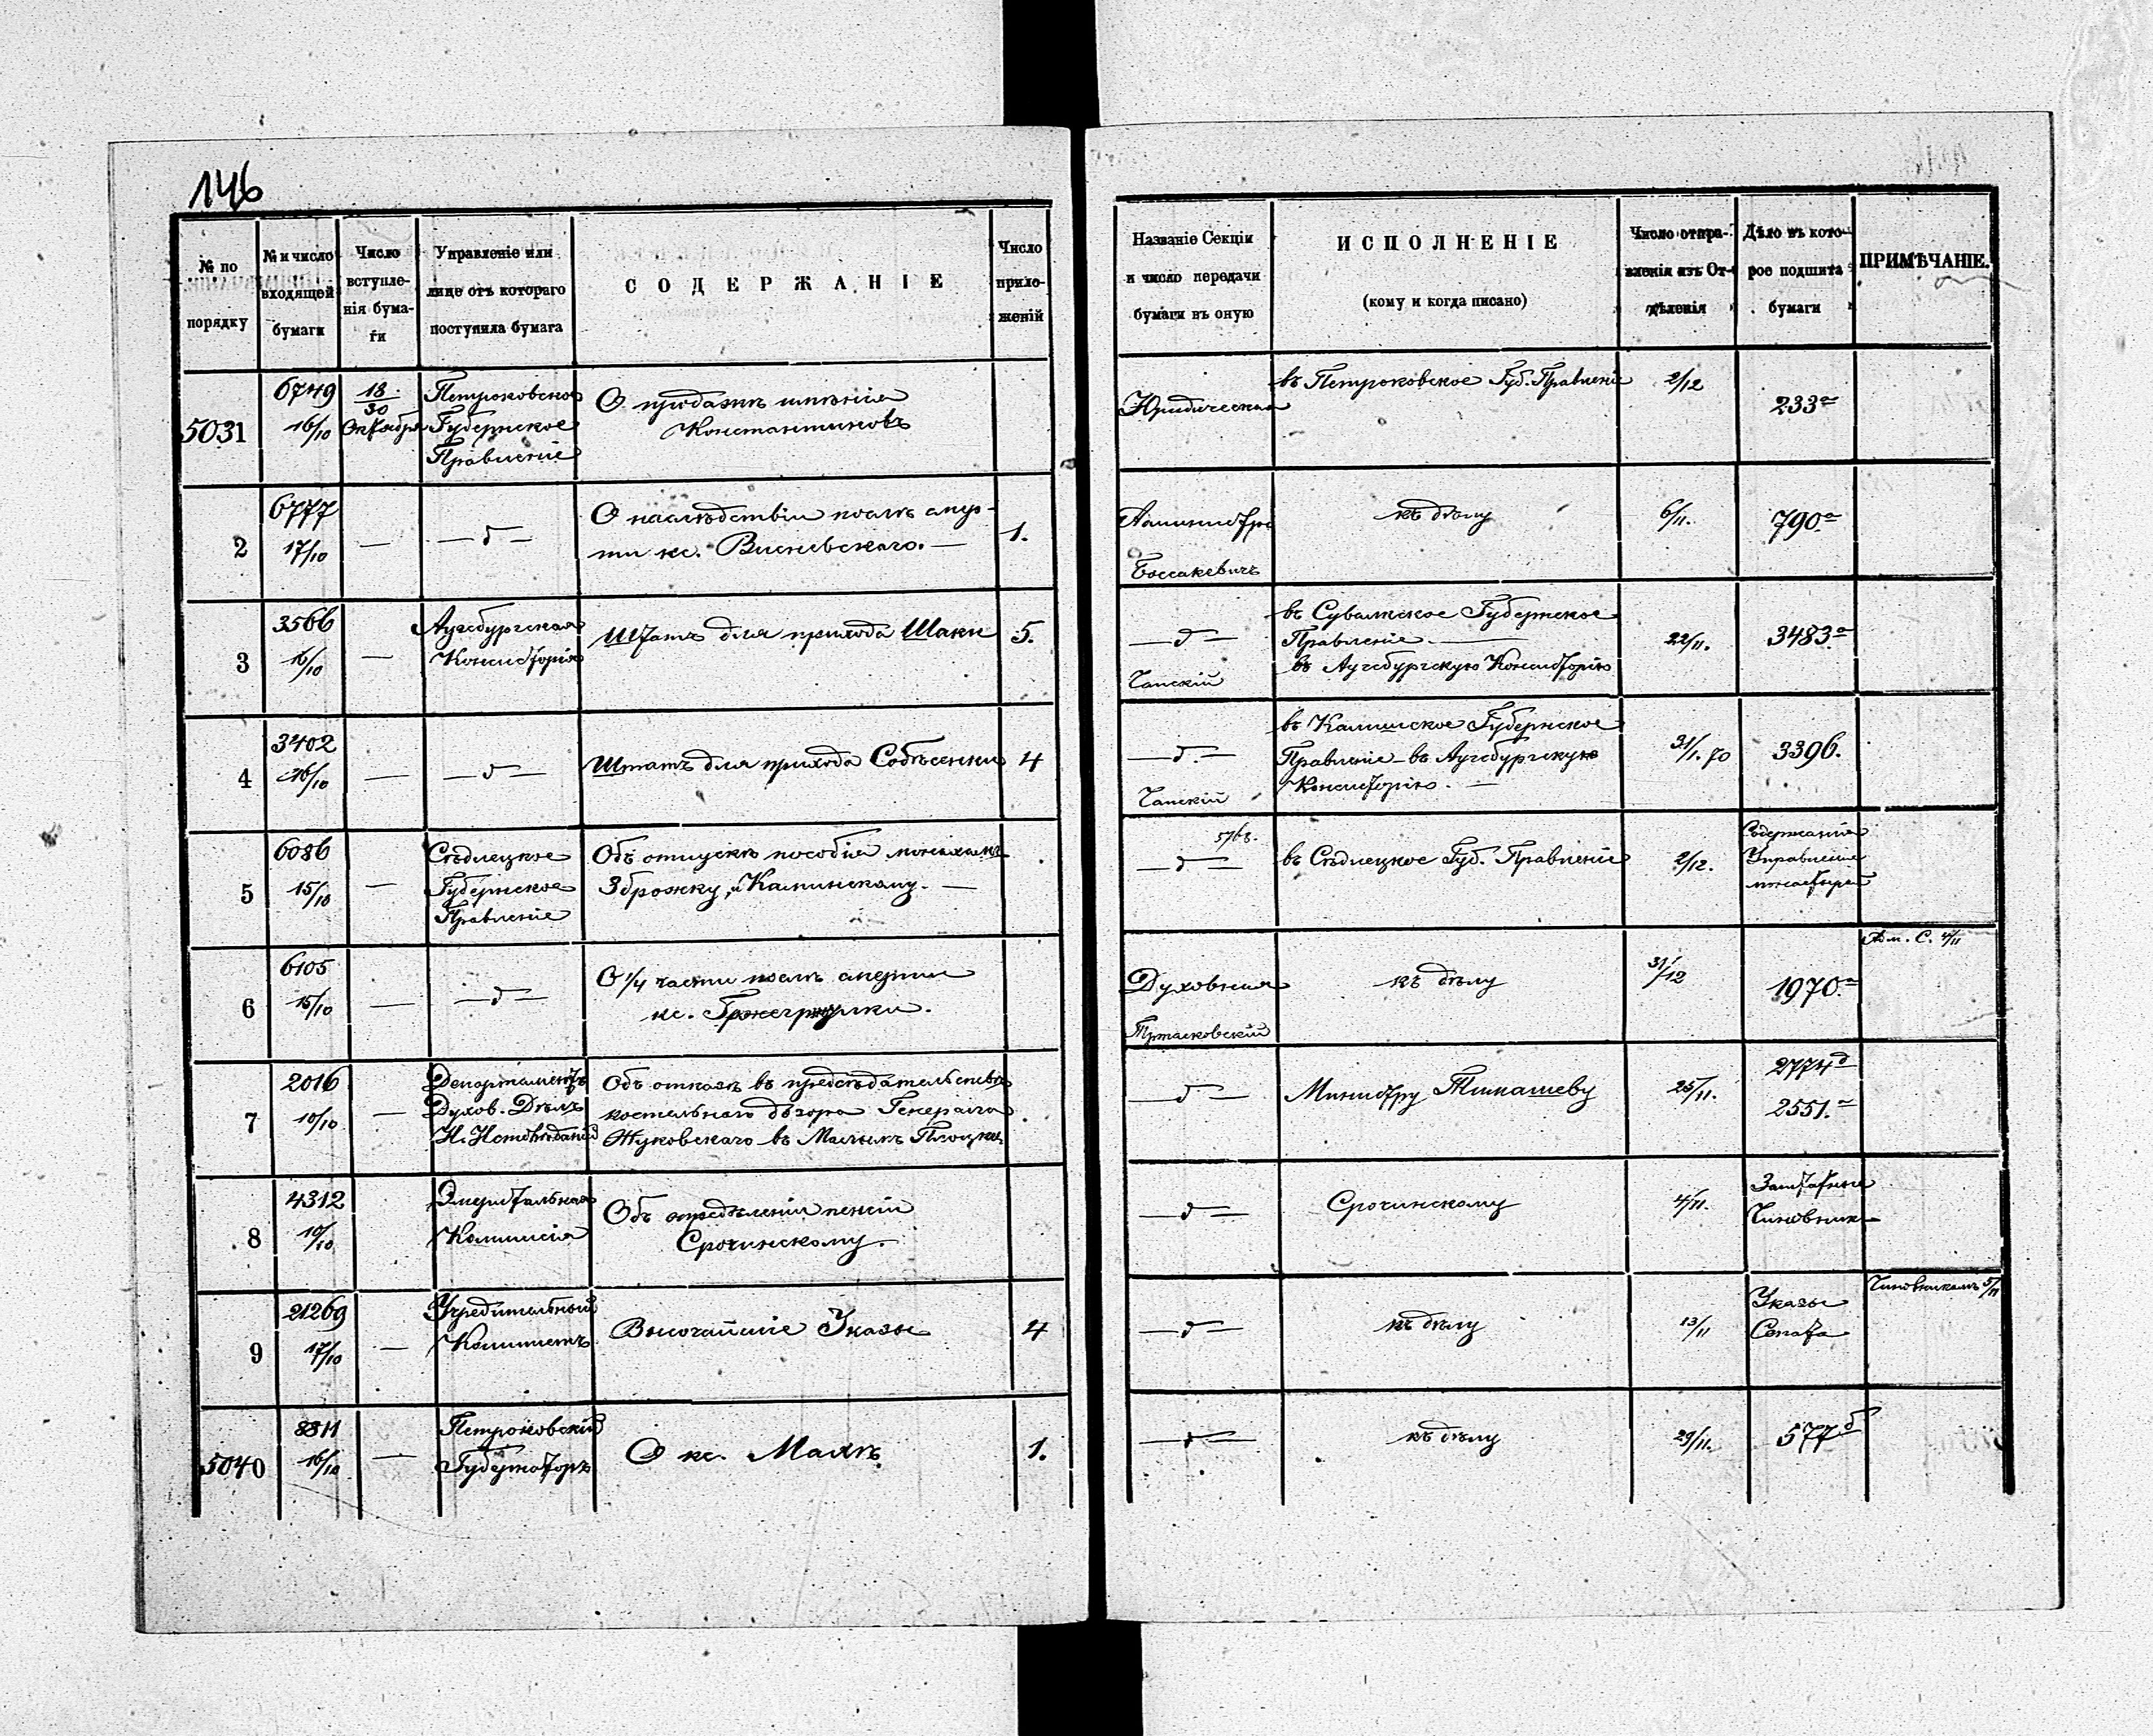 146
№ по порядку
№ и число входящей бумаги
Число вступленія бумаги
Управленіе или лице отъ котораго поступила бумага
СОДЕРЖАНІЕ
Число приложеній
Названіе Секціи и число передачи бумаги въ оную
ИСПОЛНЕНІЕ (кому и когда писано)
Число отправленія изъ Отдѣленія
Дѣло въ которое подшита бумаги
ПРИМѢЧАНІЕ.
5031
6749
16/10
18/30 Октября
Петроковское
Губернское
Правленіе
О продажѣ имѣнія
Константиновъ
Юридическая
въ Петроковское Губ. Правленіе
2/12
233а
2
6777
17/10
—
— д —
О наслѣдствіи послѣ смер-
ти кс. Висневскаго. —
1.
къ дѣлу
6/11.
790а
3
3566
16/10
—
Аугсбургская
Консисторія
Штатъ для прихода Шаки
5.
— д —
Чапскій
въ Сувалкское Губернское
Правленіе. —
въ Аугсбургскую Консисторію
22/11.
3483а
4
3402
16/10
—
— д —
Штатъ для прихода Собѣсенки
4
— д. —
Чапскій
въ Калишское Губернское
Правленіе — въ Аугсбургскую
Консисторію. —
31/1. 70
3396.
5
6086
15/10
—
Сѣдлецкое
Губернское
Правленіе
Объ отпускѣ пособія монахамъ
Зброжку и Калинскому. —
— д —
въ Сѣдлецкое Губ. Правленіе
2/12.
Содержаніе
Управленіе
монастырей
6
6105
15/10
—
— д —
О 1/4 части послѣ смерти
кс.
Духовная
къ дѣлу
31/12
1970а
Адм. С. 4/11
7
2016
10/10
—
Департаментъ
Духов. Дѣлъ
И. Исповѣданій
Объ отказѣ въ предсѣдательствѣ
костельнаго дозора Генерала
Жуковскаго въ Маломъ Плоцкѣ
— д —
Министру Тимашеву
25/11.
2774д
2551.а
8
4312
10/10
Эмеритальная
Коммисія
Объ опредѣленіи пенсіи
Срочинскому.
— д —
Срочинскому
4/11.
Заштатные
Чиновники
9
21269
17/10
—
Учредительный
Комитетъ
Высочайшіе Указы
4
— д —
къ дѣлу
13/11
Указы
Сената
Чиновникамъ 5/11
5040
8811
16/10
—
Петроковскій
Губернаторъ
О кс. Малкѣ.
1.
— д —
къ дѣлу
29/11.
577б